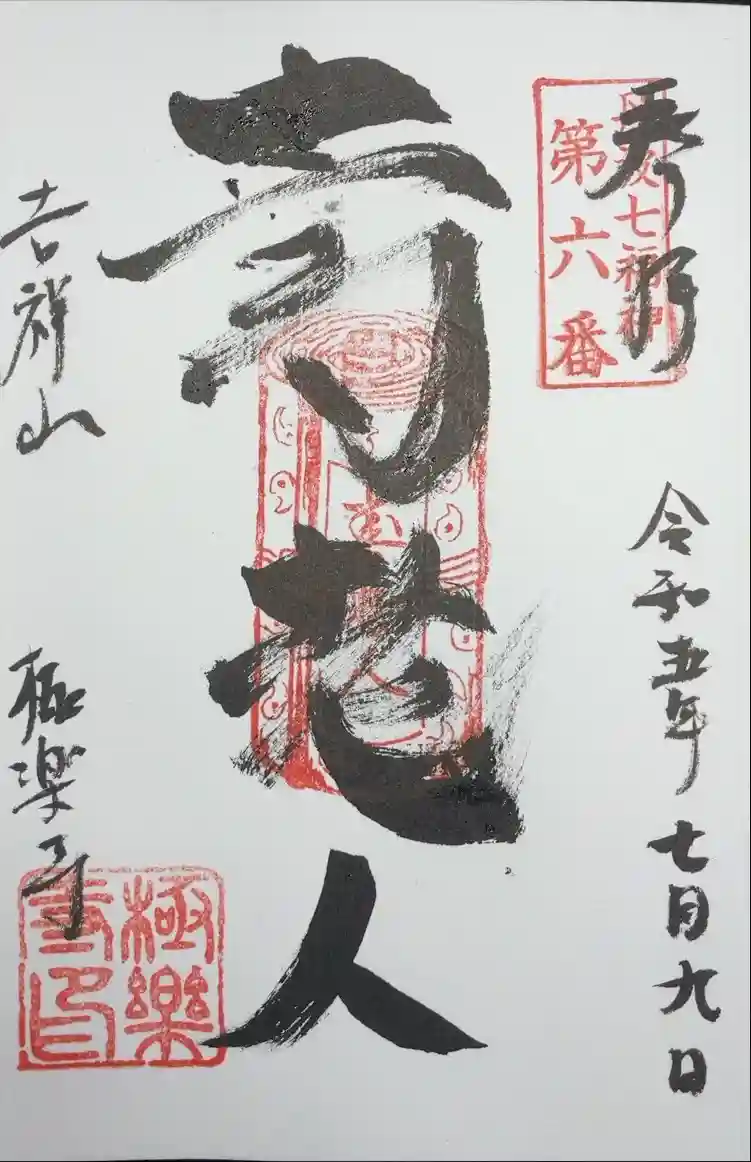 奉拝
七福神
第六番
令和五年七月九日
寿老人
吉祥山
極楽寺
極樂
寺印